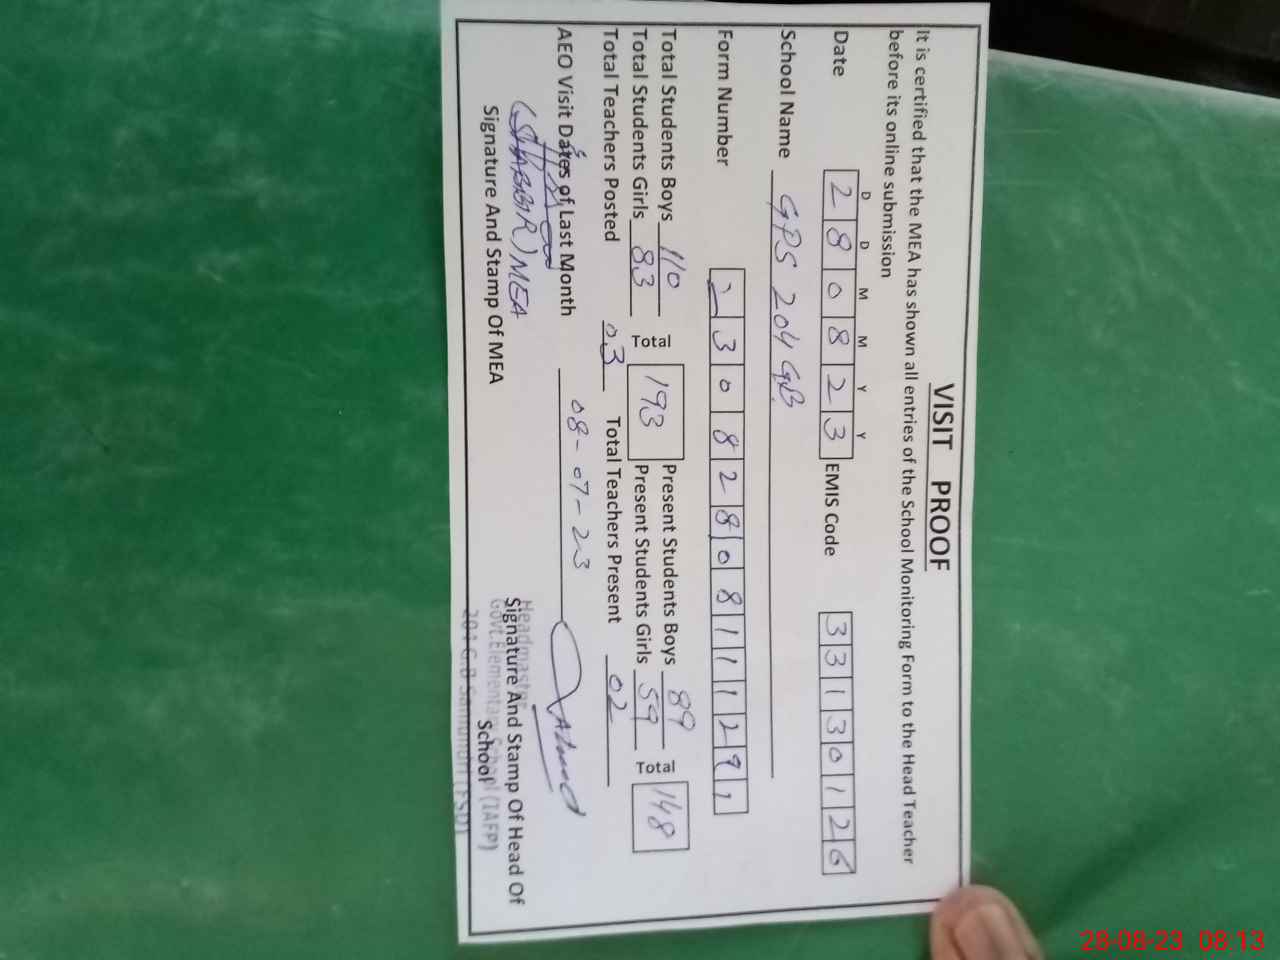 VISIT PROOF
It is certified that the MEA has shown all entries of the School Monitoring Form to the Head Teacher
before its online submission
D D M M Y Y
Date 2 8 0 8 2 3 EMIS Code 3 3 1 3 0 1 2 6
School Name GPS 204 GB
Form Number 2 3 0 8 2 8 0 8 1 1 1 2 9 1
Total Students Boys 110 Present Students Boys 89
Total Students Girls 83 Total 193 Present Students Girls 59 Total 148
Total Teachers Posted 03 Total Teachers Present 02
AEO Visit Dates of Last Month 08-07-23
(SHABBIR) MEA
Signature And Stamp Of MEA
Signature And Stamp Of Head Of
School
Headmaster
Govt. Elementary School (IAFP)
204 G.B (FSD)
28-08-23 08:13